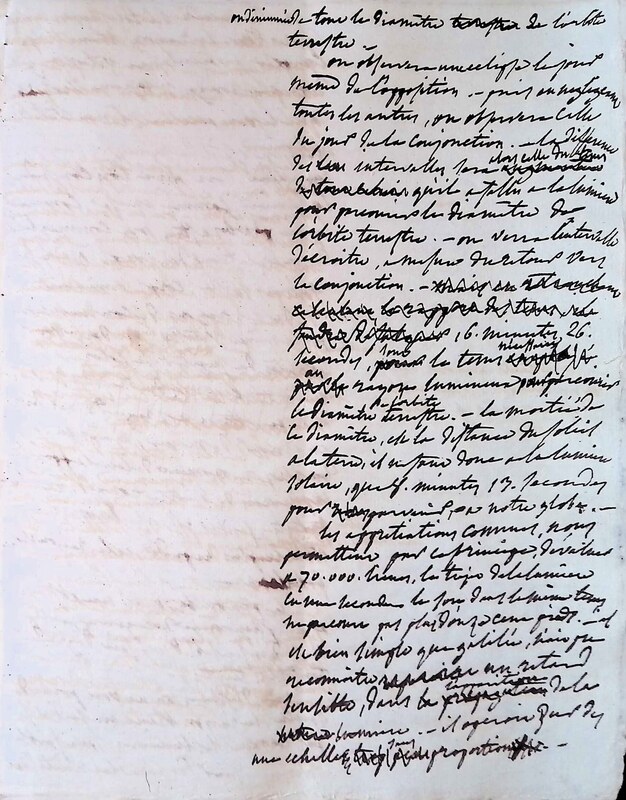 ou diminué de tout le diamètre terrestre de l'orbite
terrestre. —
on observera une eclipse le jour
même de l'opposition. — puis en negligeant
toutes les autres, on observera celle
du jour de la conjonction. — la difference
des intervalles sera alors celle du tems
qu'il a fallu a la lumiere
pour parcourir le diamètre de
l'orbite terrestre. — on verra l'intervalle
décroitre, a mesure du retour vers
la conjonction. —
16. minutes, 26.
secondes, sont le tems necessaire
au rayon lumineux pour parcourir
le diamètre de l'orbite terrestre. — la moitié de
ce diamètre, est la distance du soleil
a la terre, il ne faut donc a la lumiere
solaire, que 8. minutes 13. secondes
pour parvenir, a notre globe. —
les appretiations connues, nous
permettent par ce principe, d'evaluer
a 70.000. lieues, le trajet de la lumiere
en une seconde. le son dans le même tems
ne parcourt pas plus d'onze cent pieds. — il
est bien simple que galilée, n'ait pu
reconnaitre un retard
sensible, dans la apparition de la
lumiere. — il operoit sur des
une echelle sans proportion. —